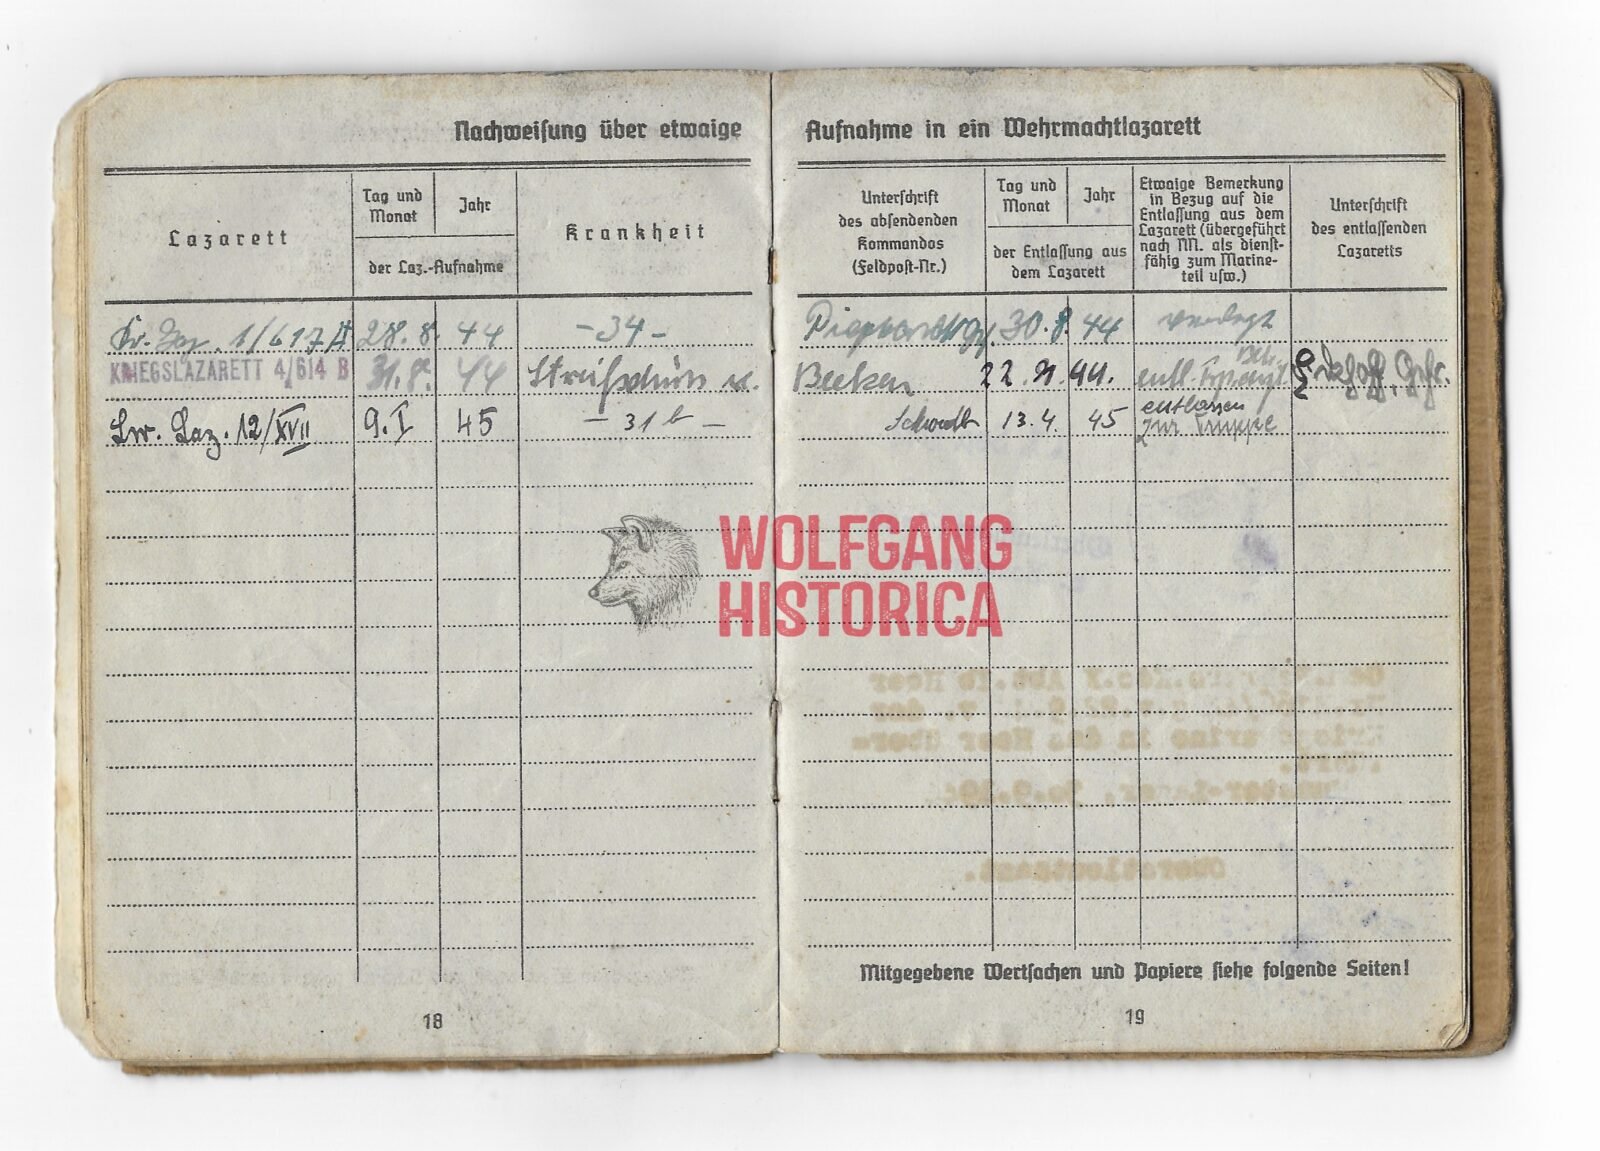 Nachweisung über etwaige Aufnahme in ein Wehrmachtlazarett
Lazarett
Tag und Monat
Jahr
der Laz.-Aufnahme
Krankheit
Unterschrift
des absendenden
Kommandos
(Feldpost-Nr.)
Tag und Monat
Jahr
der Entlassung aus
dem Lazarett
Etwaige Bemerkung
in Bezug auf die
Entlassung aus dem
Lazarett (übergeführt
nach NN. als dienst-
fähig zum Marine-
teil usw.)
Unterschrift
des entlassenden
Lazaretts
Kr. Laz. 1/617 28.8. 44 -34- 30.8. 44 verlegt
KRIEGSLAZARETT 4/614 B 31.8. 44 22. 44.
Lw. Laz. 12/XVII 9.I 45 - 31 b - 13.4. 45 entlassen
zur Truppe
WOLFGANG
HISTORICA
Mitgegebene Wertsachen und Papiere siehe folgende Seiten!
18
19